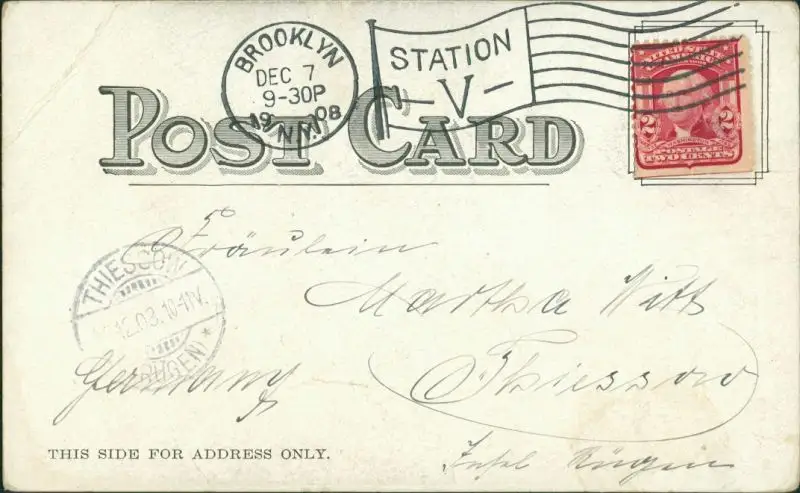 BROOKLYN
DEC 7
9-30P
1908
N.Y.
STATION
V
POST CARD
UNITED STATES
OF AMERICA
2 2
WASHINGTON
POSTAGE
TWO CENTS
Fräulein
Martha Witt
THIESSOW
12.03.10-11V.
(RÜGEN)
Germany
Thiessow
THIS SIDE FOR ADDRESS ONLY.
Insel Rügen